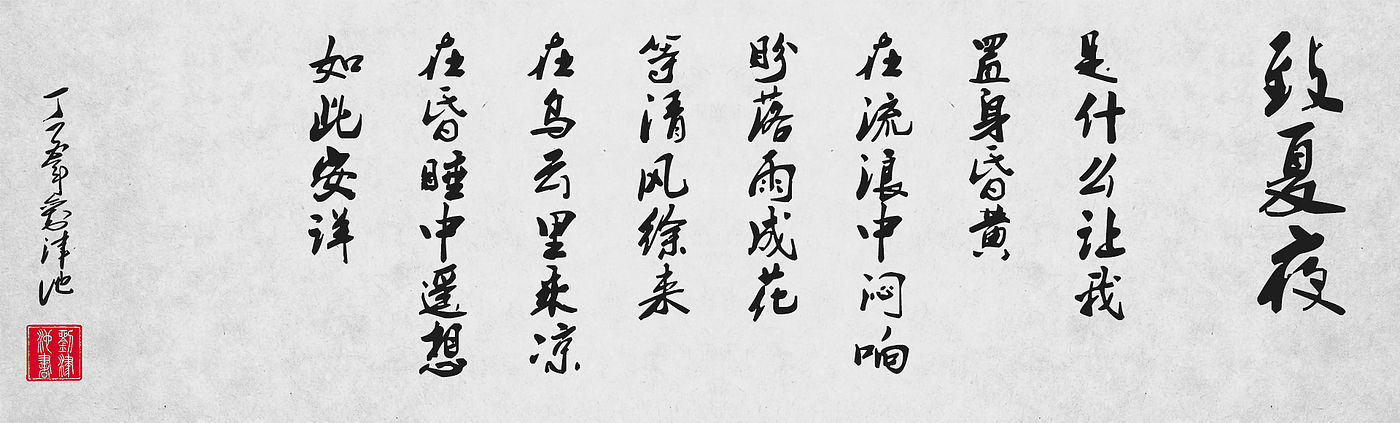 致夏夜
是什么让我
置身昏黄
在流浪中闷响
盼落雨成花
等清风徐来
在乌云里乘凉
在昏睡中遥想
如此安详
丁酉年 刘津池
劉津
池書